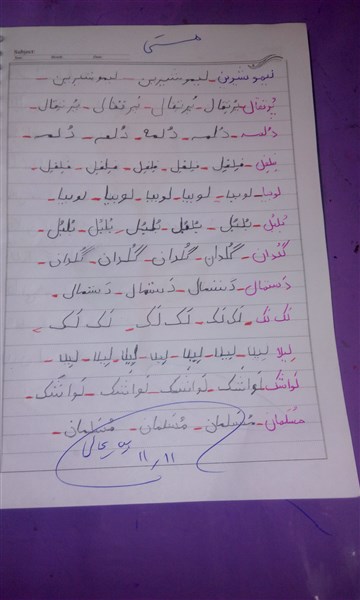 هستی
Subject
Date Month Year
لیمو شیرین - لیمو شیرین - لیمو شیرین
پرتقال - پُرتقال - پُرتقال - پُرتقال - پُرتقال
دُلمه - دُلمه - دُلمه - دُلمه - دُلمه
فلفل - فلفل - فلفل - فلفل - فلفل
لوبیا - لوبیا - لوبیا - لوبیا - لوبیا - لوبیا
بُلبُل - بُلبُل - بُلبُل - بُلبُل - بُلبُل - بُلبُل
گلدان - گُلدان - گُلدان - گُلدان - گُلدان
دستمال - دَستمال - دَستمال - دَستمال
لک لک - لَک لَک - لَک لَک - لَک لَک -
لیلا - لیلا - لیلا - لیلا - لیلا - لیلا - لیلا
لواشک - لَواشَک - لَواشَک - لَواشَک - لَواشَک
مسلمان - مُسَلمان - مُسَلمان - مُسَلمان
۱۱/۱۱